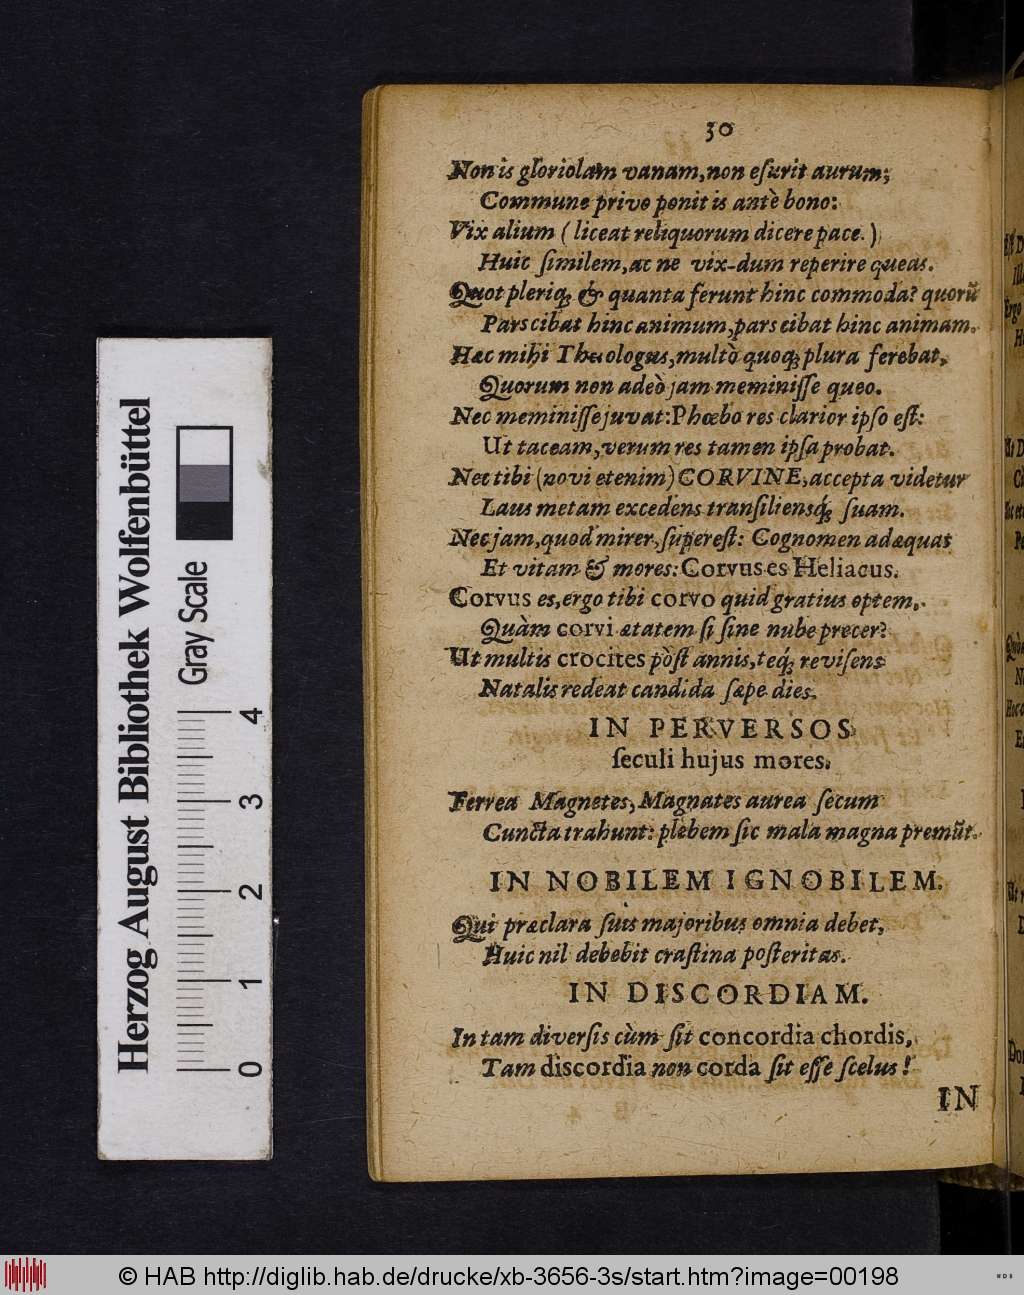 30
Non is gloriolam vanam, non eſurit aurum;
Commune privo ponit is antè bono:
Vix alium (liceat reliquorum dicere pace.)
Huic ſimilem, ac ne vix-dum reperire queas.
Quot pleriq; & quanta ferunt hinc commoda? quorũ
Pars cibat hinc animum, pars cibat hinc animam.
Hæc mihi Theologus, multò quoq; plura ferebat,
Quorum non adeò jam meminiſſe queo.
Nec meminiſſe juvat: Phœbo res clarior ipſo eſt:
Ut taceam, verum res tamen ipſa probat.
Nec tibi (novi etenim) CORVINE, accepta videtur
Laus metam excedens tranſiliensq́; ſuam.
Nec jam, quod mirer, ſupereſt: Cognomen adæquas
Et vitam & mores: Corvus es Heliacus.
Corvus es, ergo tibi corvo quid gratius optem,
Quàm corvi ætatem ſi ſine nube precer?
Ut multis crocites pòſt annis, teq́; reviſens
Natalis redeat candida ſæpe dies.
IN PERVERSOS
ſeculi hujus mores.
Ferrea Magnetes, Magnates aurea ſecum
Cuncta trahunt: plebem ſic mala magna premũt.
IN NOBILEM IGNOBILEM.
Qui præclara ſuis majoribus omnia debet,
Huic nil debebit craſtina poſteritas.
IN DISCORDIAM.
In tam diverſis cùm ſit concordia chordis,
Tam discordia non corda ſit eſſe ſcelus!
IN
Herzog August Bibliothek Wolfenbüttel
Gray Scale
0 1 2 3 4
© HAB http://diglib.hab.de/drucke/xb-3656-3s/start.htm?image=00198